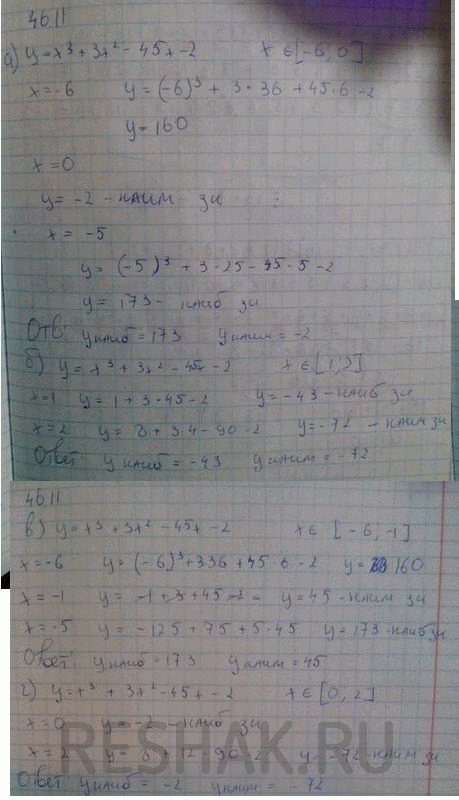 4611
а) y=x³+3x²-45x-2 x∈[-6;0]
x=-6 y=(-6)³+3·36+45·6-2
y=160
x=0
y=-2-наим зн
x=-5
y=(-5)³+3·25-45·5-2
y=173-наиб зн
Отв: yнаиб=173 yнаим=-2
б) y=x³+3x²-45x-2 x∈[1;2]
x=1 y=1+3-45-2 y=-43-наиб зн
x=2 y=8+3·4-90-2 y=-72-наим зн
Ответ: yнаиб=-43 yнаим=-72
4611
в) y=x³+3x²-45x-2 x∈[-6;-1]
x=-6 y=(-6)³+336+45·6-2 y=160
x=-1 y=-1+3+45-2- y=45-наим зн
x=-5 y=-125+75+5·45 y=173-наиб зн
Ответ: yнаиб=173 yнаим=45
г) y=x³+3x²-45x-2 x∈[0,2]
x=0 y=-2-наиб зн
x=2 y=8 12-90-2 y=-72-наим зн
Ответ yнаиб=-2 yнаим=-72
RESHAK.RU